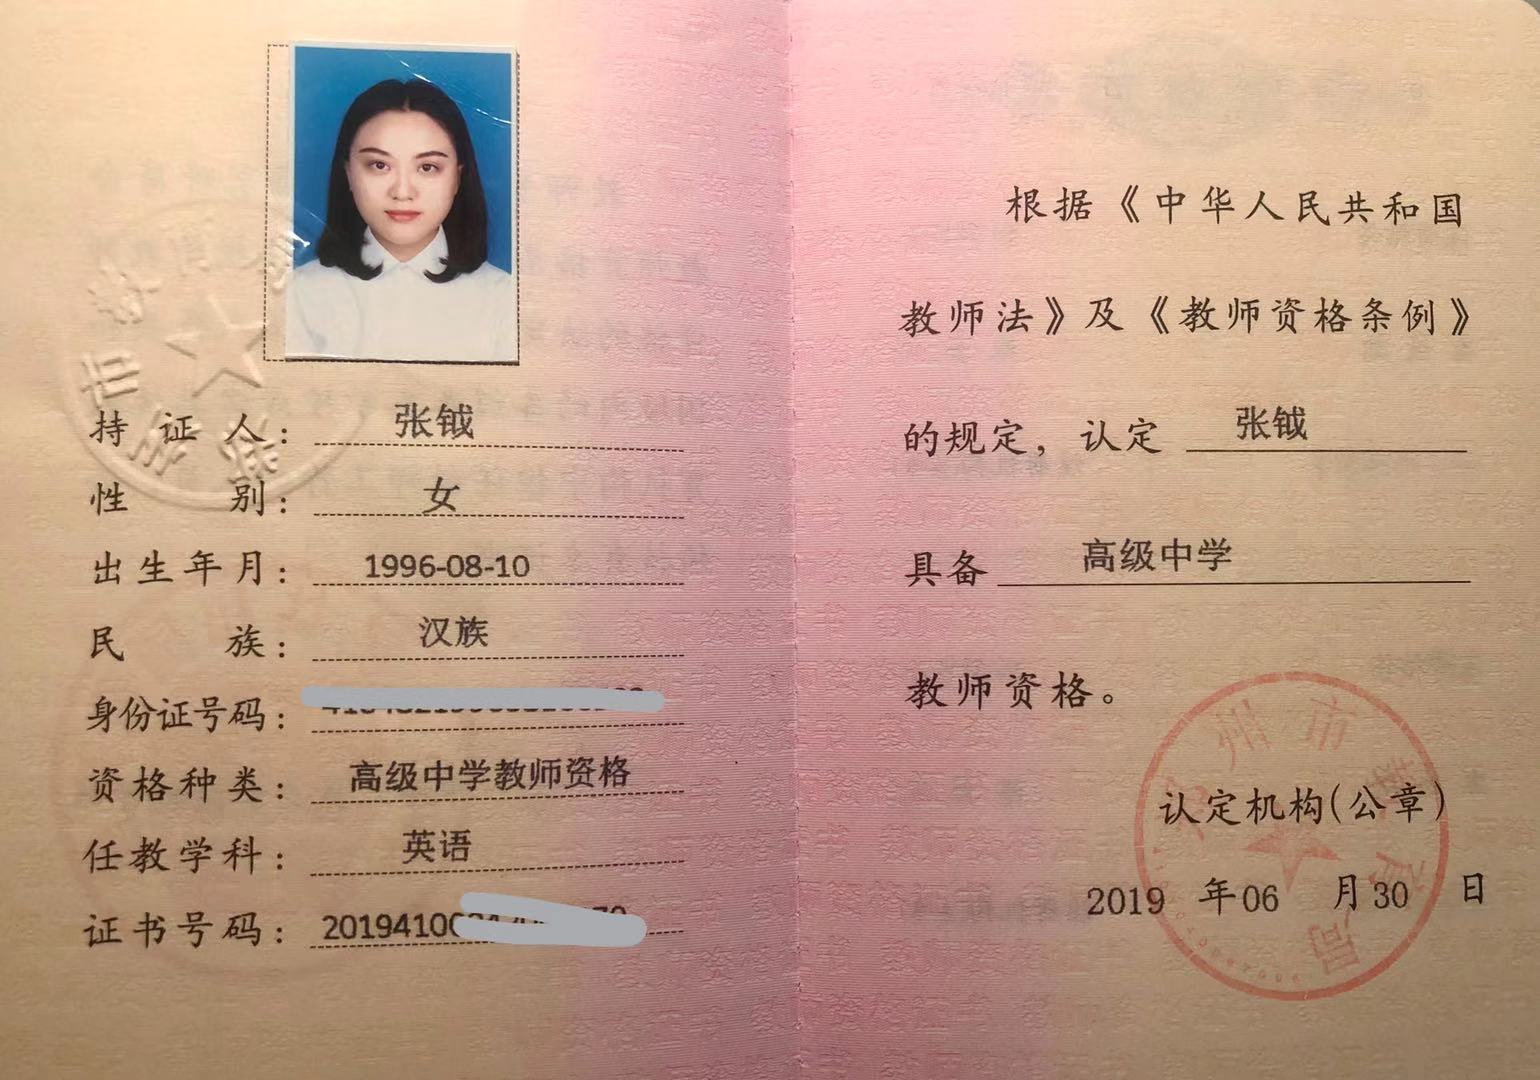 持证人：张钺
性别：女
出生年月：1996-08-10
民族：汉族
身份证号码：
资格种类：高级中学教师资格
任教学科：英语
证书号码：2019410
根据《中华人民共和国
教师法》及《教师资格条例》
的规定，认定 张钺
具备 高级中学
教师资格。
州市教育局
认定机构(公章)
2019 年 06 月 30 日